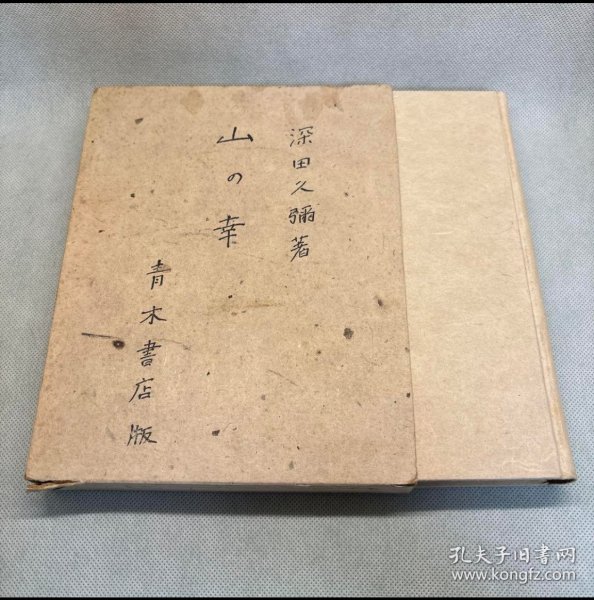 深田久彌著
山の幸
青木書店版
孔夫子旧书网
www.kongfz.com